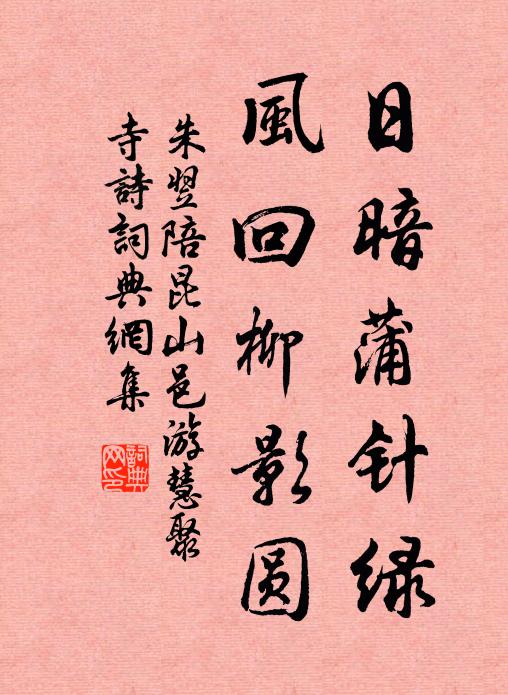 日暗蒲针绿
風回柳影圆
朱翌陪昆山邑游慧聚
寺詩詞典網集
詞典網印